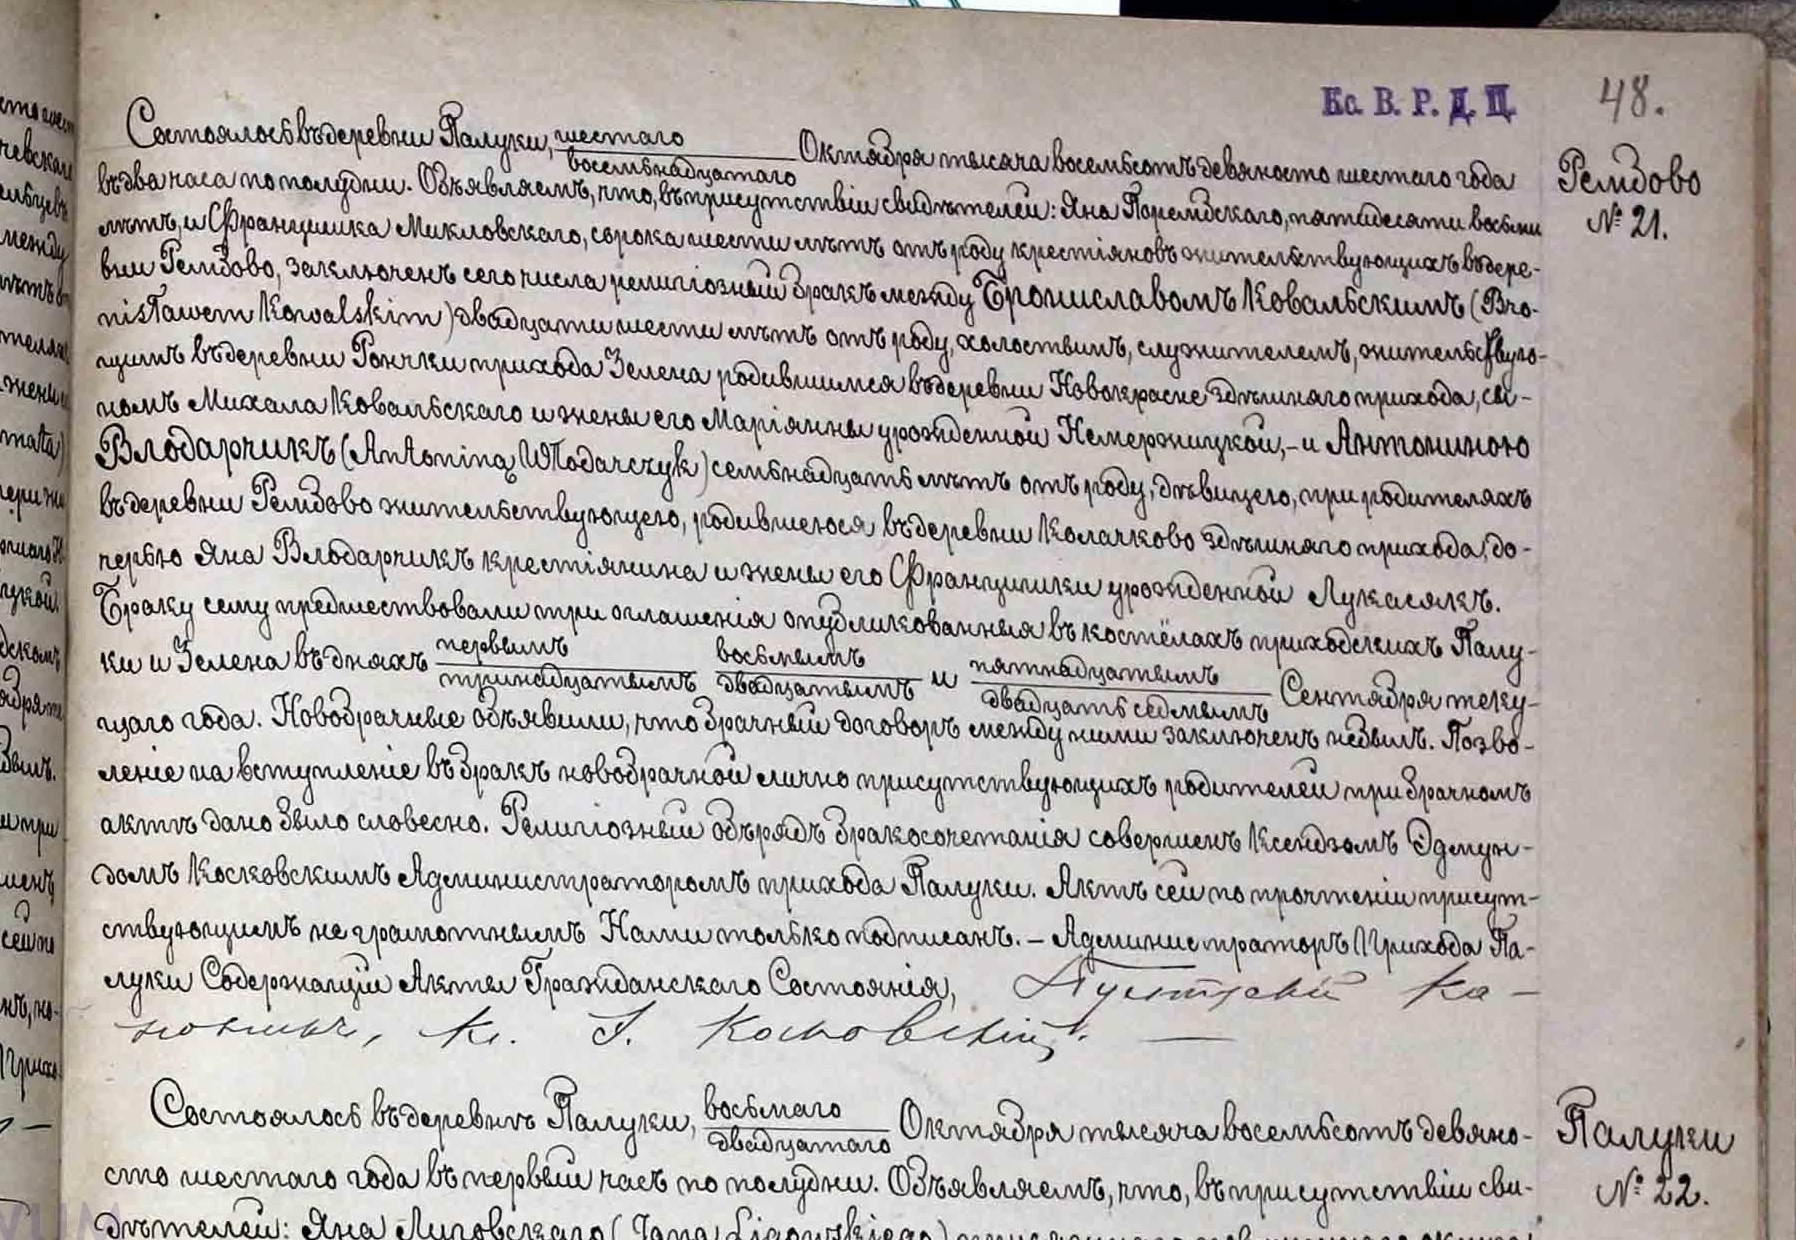 Кс. В. Р. Д. Ц.
48.
Рембово
№ 21.
Состоялось въ деревни Палуки, шестаго/восемьнадцатаго Октября тысяча восемьсотъ девяносто шестаго года
въ два часа по полудни. Объявляемъ, что, въ присутствіи свидѣтелей: Яна Порембскаго, пятьдесяти восьми
лѣтъ, и Францишка Микловскаго, сорока шести лѣтъ отъ роду крестіяновъ жительствующихъ въ дере-
вни Рембово, заключенъ сего числа религіозный бракъ между Брониславомъ Ковальскимъ (Bro-
nisławem Kowalskim) двадцати шести лѣтъ отъ роду, холостымъ, служителемъ, жительствую-
щимъ въ деревни Рончки прихода Зелена родившимся въ деревни Новокрасне здѣшняго прихода, сы-
номъ Михала Ковальскаго и жены его Маріянны урожденной Немержицкой, – и Антониною
Влодарчикъ (Antoniną Włodarczyk) семьнадцать лѣтъ отъ роду, дѣвицею, при родителяхъ
въ деревни Рембово жительствующею, родившеюся въ деревни Колачково здѣшняго прихода, до-
черью Яна Влодарчикъ крестіянина и жены его Францишки урожденной Лукасякъ.
Браку сему предшествовали три оглашенія опубликованныя въ костёлахъ приходскихъ Палу-
ки и Зелена въ дняхъ первымъ/тринадцатымъ восьмымъ/двадцатымъ и пятнадцатымъ/двадцать седмымъ Сентября теку-
щаго года. Новобрачные объявили, что брачный договоръ между ними заключенъ небылъ. Позво-
леніе на вступленіе въ бракъ новобрачной лично присутствующихъ родителей при брачномъ
актѣ дано было словесно. Религіозный обърядъ бракосочетанія совершенъ Ксендзомъ Эдмун-
домъ Косковскимъ Администраторомъ прихода Палуки. Актъ сей по прочтеніи присут-
ствующимъ неграмотнымъ Нами только подписанъ. – Администраторъ Прихода Па-
луки Содержащій Акты Гражданскаго Состоянія, Пултускій Ка-
ноникъ, Кс. Косковскій. —
Палуки
№ 22.
Состоялось въ деревнѣ Палуки, восьмаго/двадцатаго Октября тысяча восемьсотъ девяно-
сто шестаго года въ первый часъ по полудни. Объявляемъ, что, въ присутствіи сви-
дѣтелей: Яна Лиговскаго (Jana Ligowskiego)